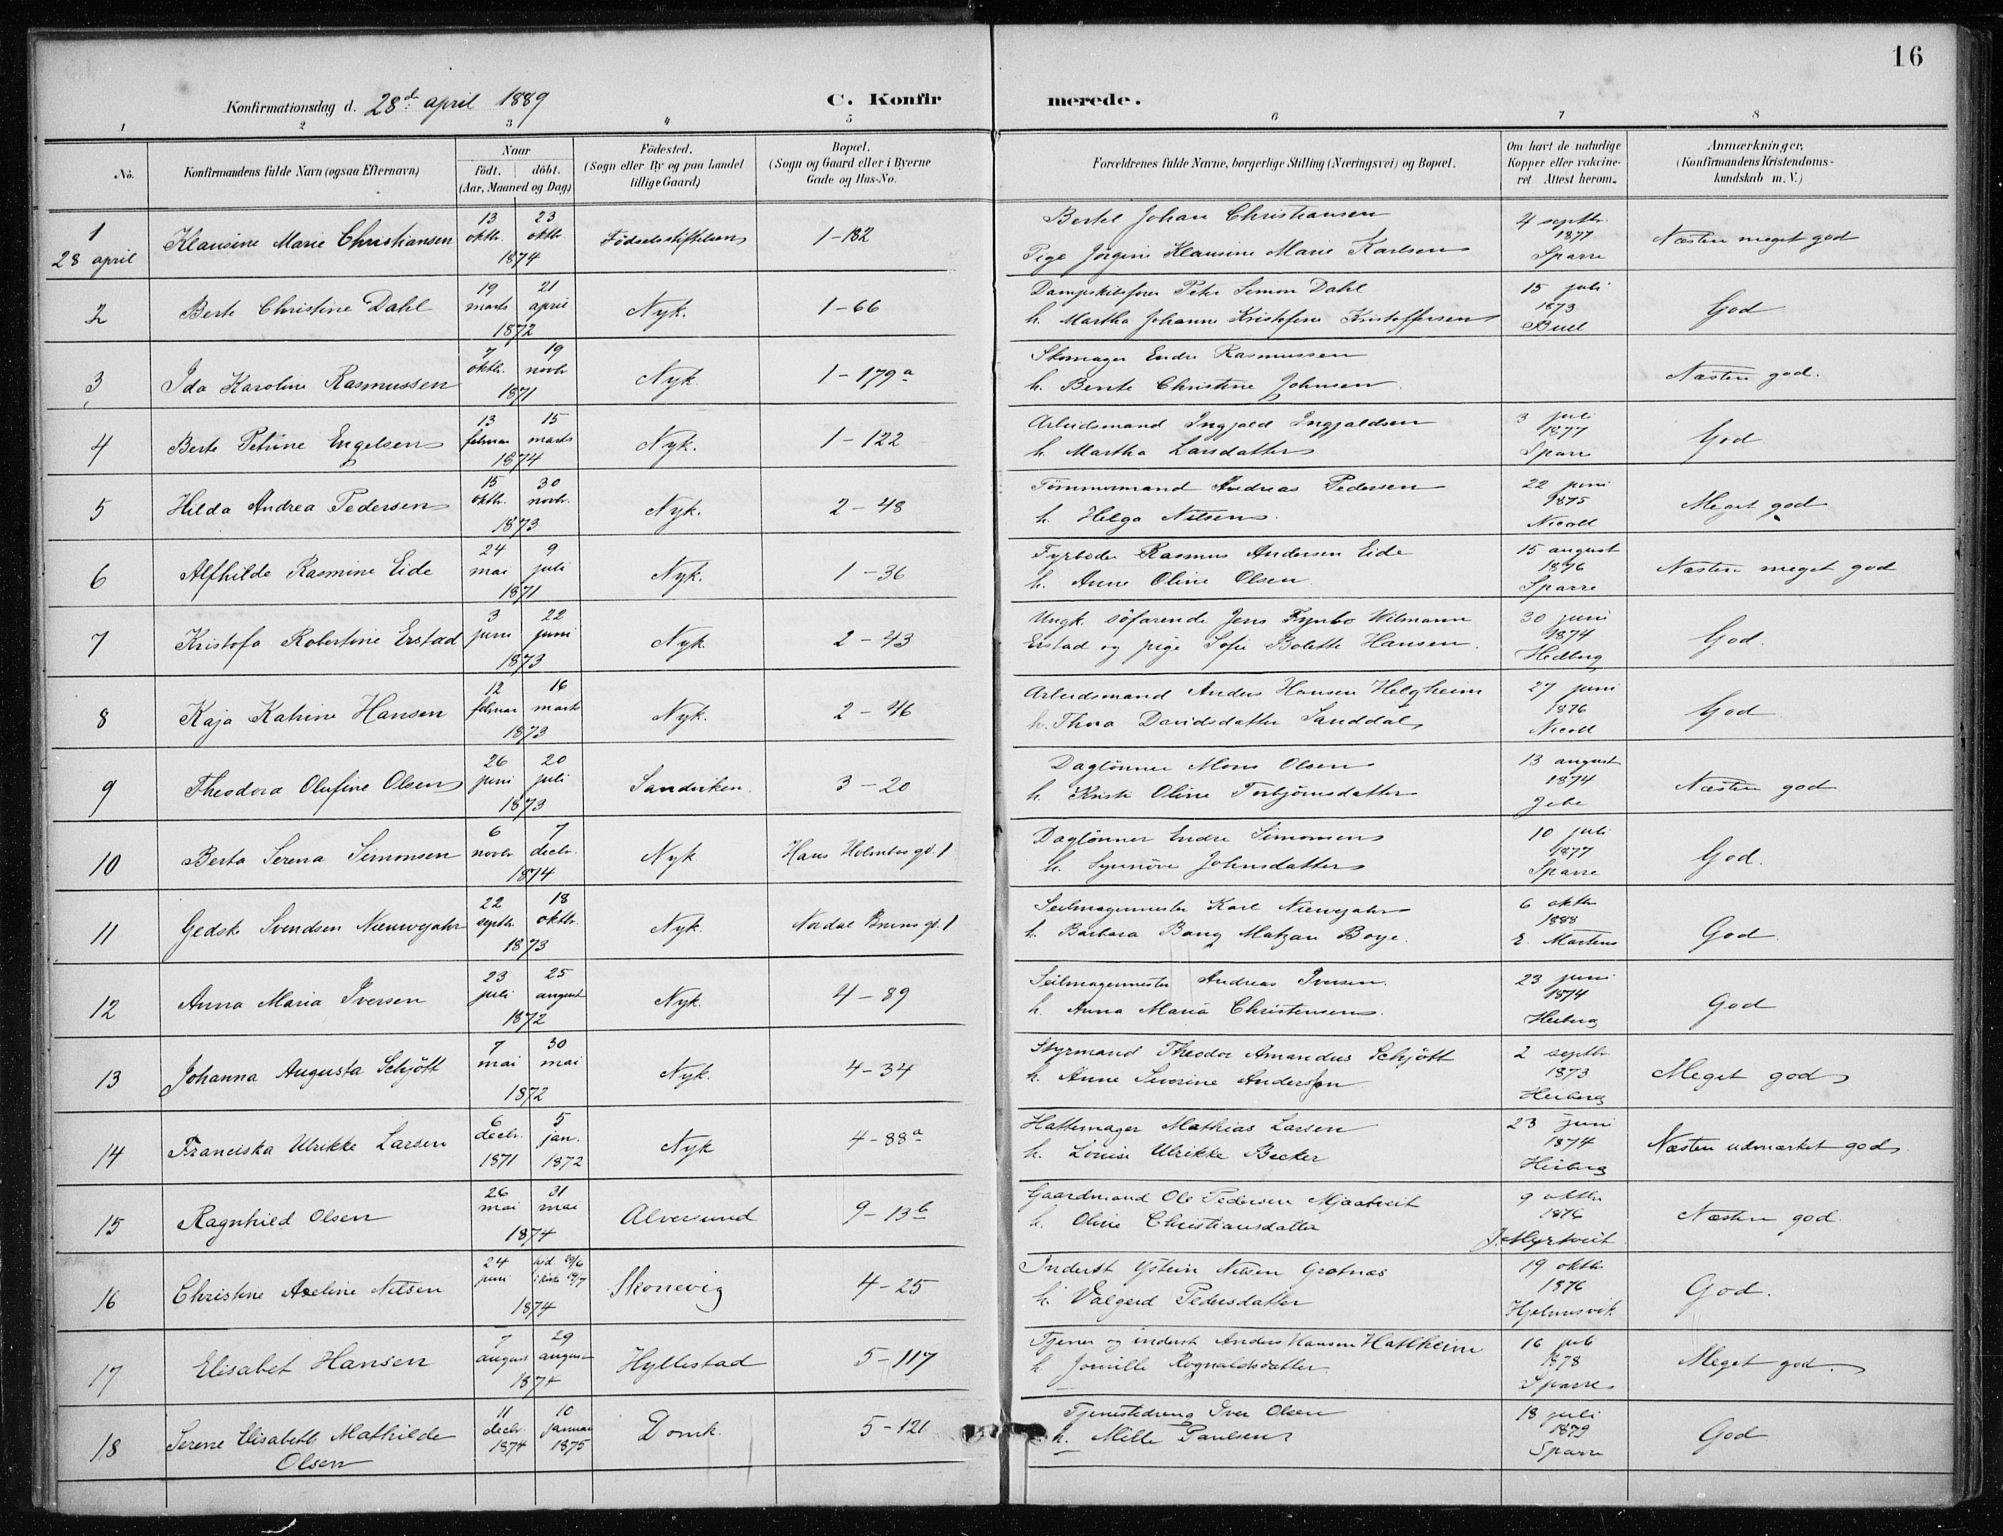 16
Konfirmationsdag d. 28de april 1889 C. Konfirmerede.
1 2 3 4 5 6 7 8
No. Konfirmandens fulde Navn (ogsaa Efternavn) Naar födt. döbt. (Aar, Maaned og Dag) Födested. (Sogn eller By og paa Landet tillige Gaard) Bopæl. (Sogn og Gaard eller i Byerne Gade og Hus-No. Forældrenes fulde Navne, borgerlige Stilling (Næringsvei) og Bopæl. Om havt de naturlige Kopper eller vakcineret. Attest herom. Anmærkninger. (Konfirmandens Kristendomskundskab m. V.)
1 28 april Klausine Marie Christiansen 13 oktbr. 23 oktbr. 1874 Födselsstiftelsen 1-182 Bertel Johan Christiansen Pige Jörgine Klausine Marie Karlsen 4 septbr. 1877 Sparre Næsten meget god
2 Berte Christine Dahl 19 marts 21 april 1872 Nyk. 1-66 Dampskibsförer Peter Simon Dahl h. Martha Johanne Kristofine Kristoffersen 15 juli 1873 Buell God
3 Ida Karoline Rasmussen 7 oktbr. 19 novbr 1871 Nyk. 1-179a Skomager Endre Rasmussen h. Bente Christine Johnsen Næsten god.
4 Berte Petrine Engelsen 13 februar 15 marts 1874 Nyk. 1-122 Arbeidsmand Ingjald Ingjaldsen h. Martha Larsdatter 3 juli 1877 Sparre God
5 Hilda Andrea Pedersen 15 oktbr. 30 novbr. 1873 Nyk. 2-48 Tömmermand Andreas Pedersen h. Helga Nilsen 22 juni 1875 Nicoll Meget god
6 Alfhilde Rasmine Eide 24 mai 9 juli 1871 Nyk. 1-36 Fyrböder Rasmus Andersen Eide h. Anne Oline Olsen 15 august 1876 Sparre Næsten meget god
7 Kristofa Robertine Erstad 3 juni 22 juni 1873 Nyk. 2-43 Ungk. söfarende Jens Fynbo Wilmann Erstad og pige Sofie Bolette Hansen. 30 juni 1874 Hedberg God.
8 Kaja Katrine Hansen 12 februar 16 marts 1873 Nyk. 2-46 Arbeidsmand Anders Hansen Helgheim h. Thora Davidsdatter Sanddal 27 juni 1876 Nicoll God
9 Theodora Olufine Olsen 26 juni 20 juli 1873 Sandviken. 3-20 Daglönner Mons Olsen h. Kirsti Oline Torbjörnsdatter 13 august 1874 Jebe Næsten god
10 Berta Serena Simonsen 6 novbr 7 decbr. 1874 Nyk Hans Holmboe gd. 1 Daglönner Endre Simonsen h. Synnöve Johnsdatter 10 juli 1877 Sparre God.
11 Gedske Svendsen Nieuwejahr 22 septbr. 18 oktbr. 1873 Nyk. Nordal Bruns gd. 1 Seilmagermester Karl Niewejahr h. Barbara Bang Matzau Boye. 6 oktbr 1888 E. Martens God.
12 Anna Maria Iversen 23 juli 25 august 1872 Nyk. 4-89 Seilmagermester Andreas Iversen. h. Anna Maria Christensen. 23 juni 1874 Heiberg God
13 Johanna Augusta Schjött 7 mai 30 mai 1872 Nyk. 4-34 Styrmand Theodor Amandus Schjött h. Anne Severine Andersson 2 septbr. 1873 Heiberg Meget god
14 Franciska Ulrikke Larsen 6 decbr. 1871 5 jan. 1872 Nyk 4-88a Hattemager Mathias Larsen h. Louise Ulrikke Becker 23 juni 1874 Heiberg Næsten udmærket god.
15 Ragnhild Olsen 26 mai 31 mai 1874 Alversund 9-13b Gaardmand Ole Pedersen Mjaatveit h. Oline Christiansdatter 9 oktbr 1876 J. Myrtveit Næsten god.
16 Christine Axeline Nilsen 24 juni 1874 Skonevig 4-25 Inderst Ystein Nilsen Grotnæs h. Valgerd Pedersdatter 19 oktbr 1876 Hjelmsvik God.
17 Elisabet Hansen 7 august 29 august 1874 Hyllestad 5-117 Tjener og inderst Anders Hansen Hatlheim h. Rognaldsdatter. 16 juli 1878 Sparre Meget god.
18 Serene Elisabeth Mathilde Olsen 11 decbr. 1874 10 januar 1875 Domk. 5-121 Tjenestedreng Iver Olsen h. Mille Paulsen 18 juli 1879 Sparre God